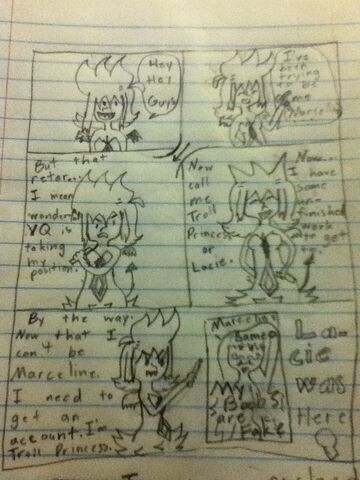 Hey
Hey
Guys
I've
been
trying
to be
Some
Marceline
But that
retar...
I mean
wonderful
VQ is
taking
my
position.
Now
call
me
Troll
Princess
or
Lacie.
Now...
I have
some
un-
finished
work
to get
By the way.
Now that I
can't be
Marceline.
I need to
get an
account. I'm
Troll Princess.
Marceline
Same
My
Boobs
are
Fake
La-
cie
was
Here